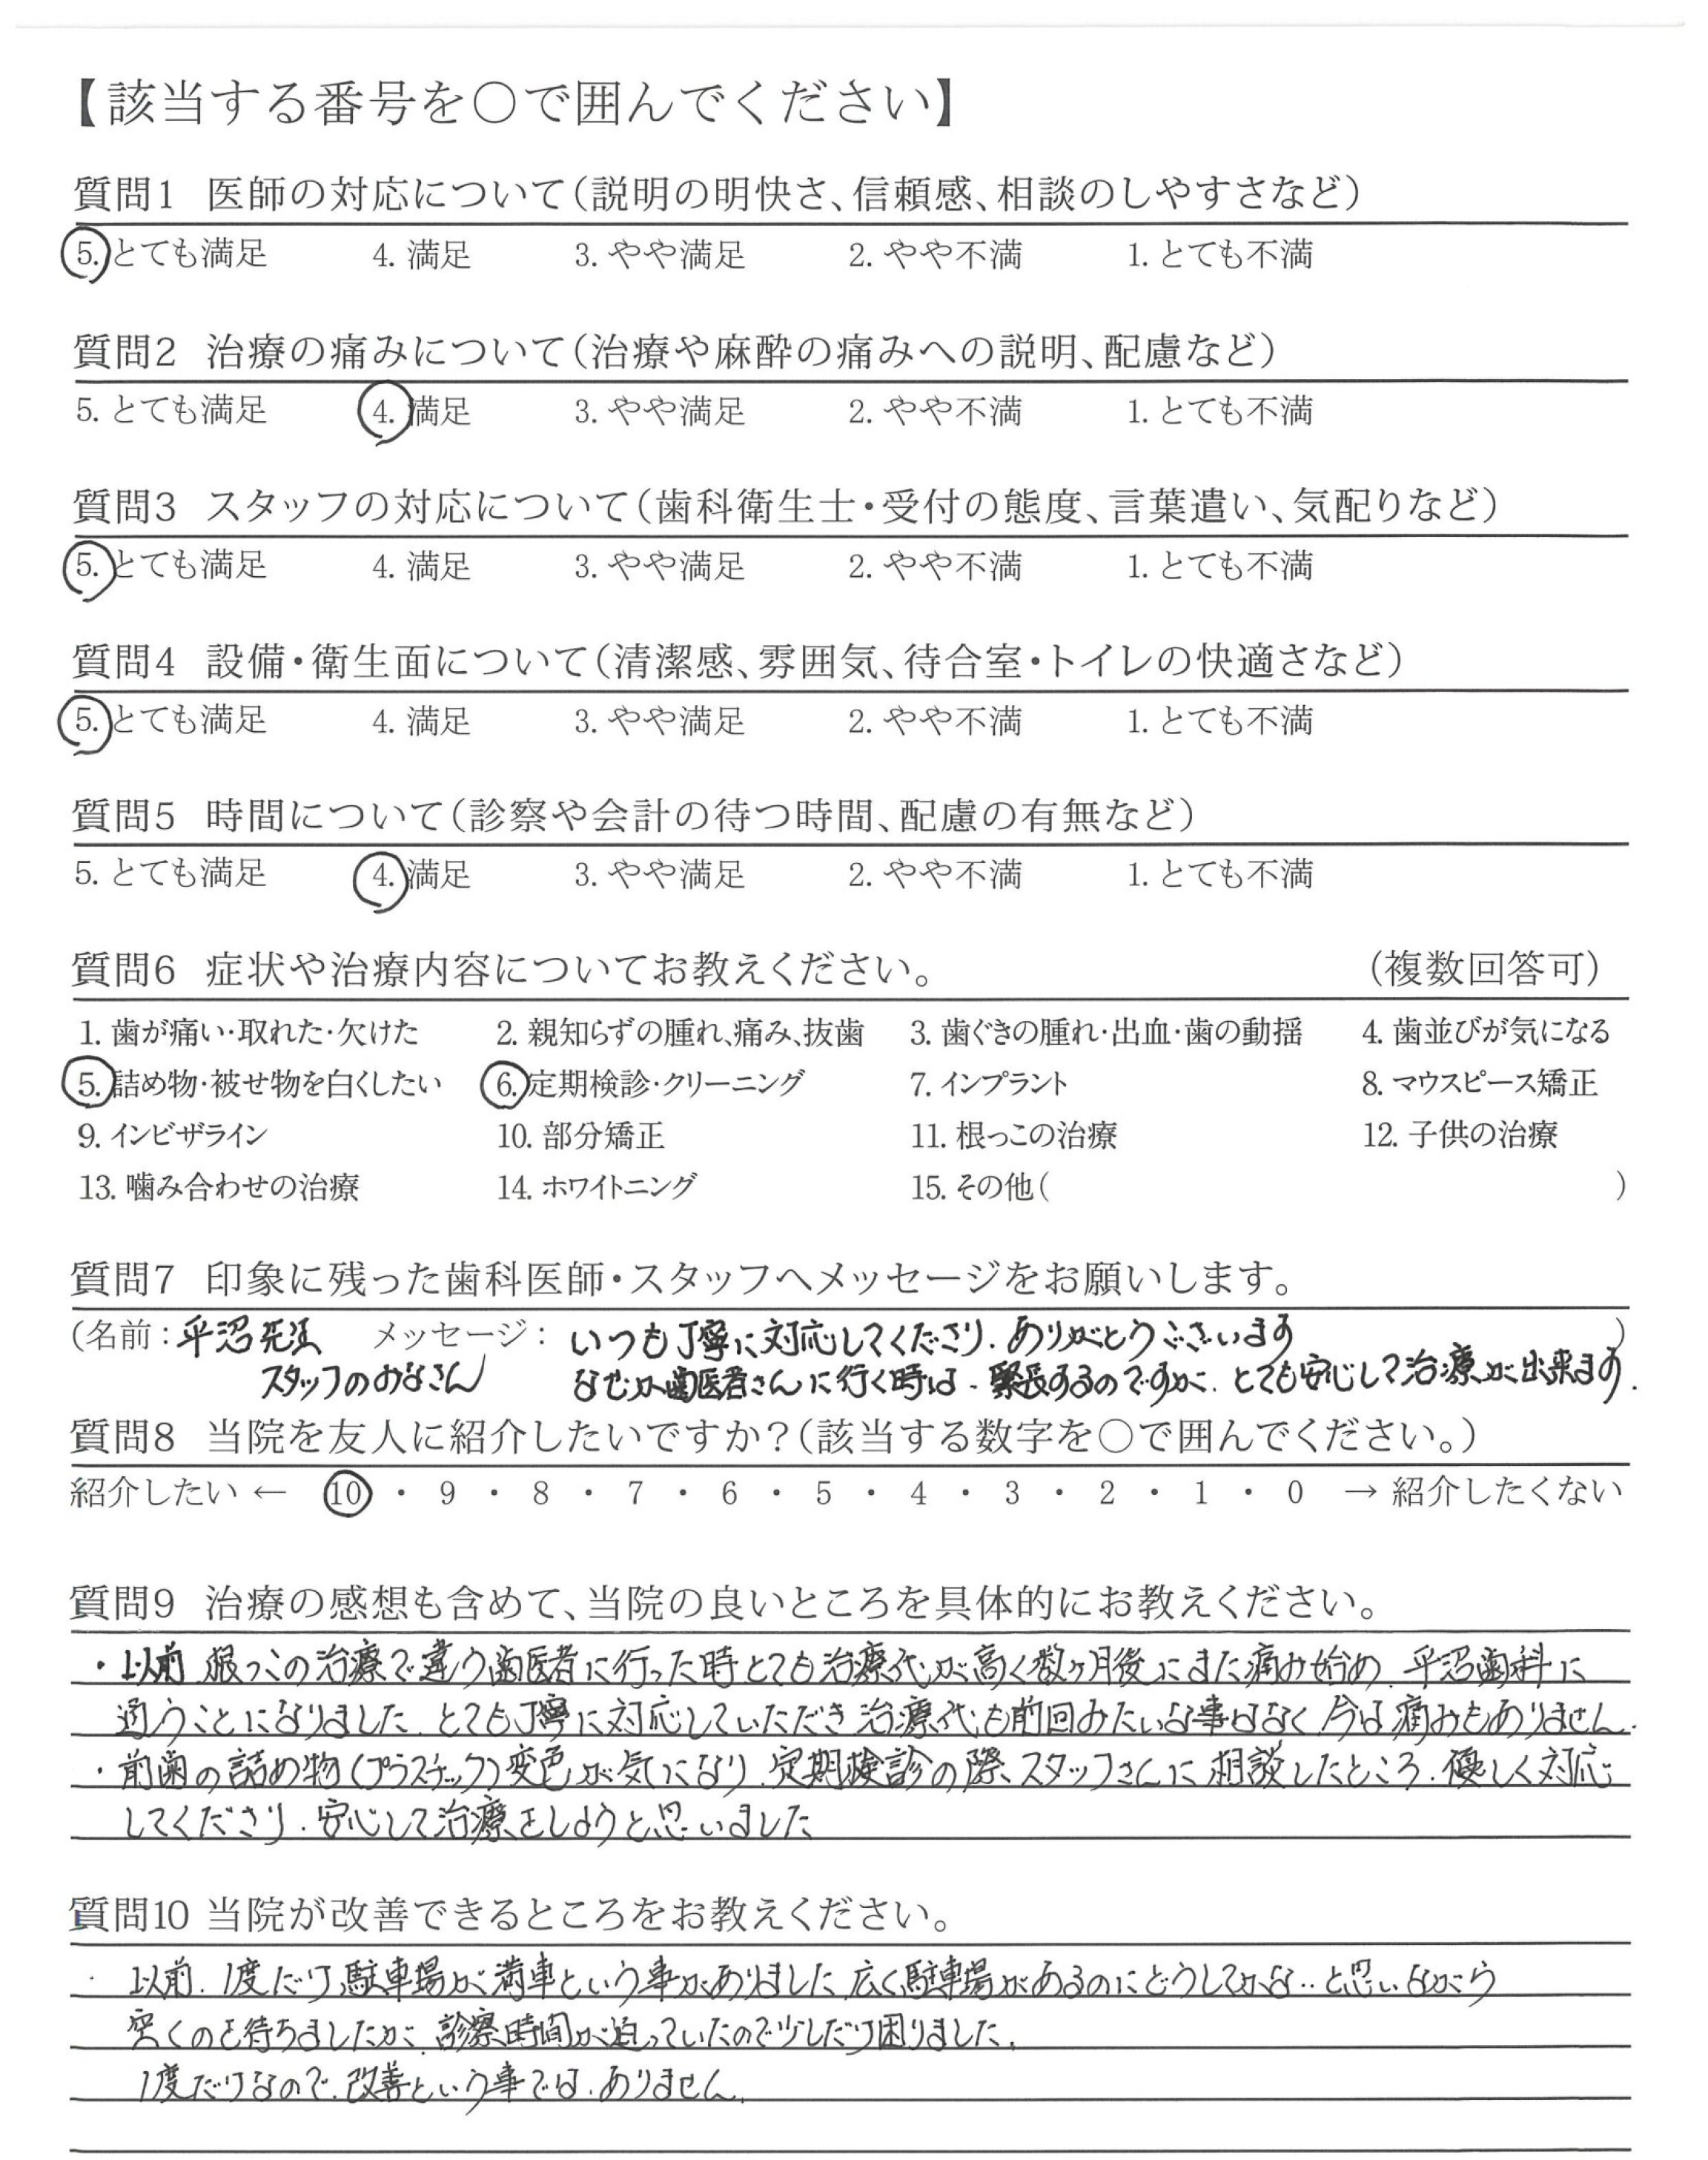 【該当する番号を○で囲んでください】
質問1 医師の対応について(説明の明快さ、信頼感、相談のしやすさなど)
5. とても満足 4. 満足 3. やや満足 2. やや不満 1. とても不満
質問2 治療の痛みについて(治療や麻酔の痛みへの説明、配慮など)
5. とても満足 4. 満足 3. やや満足 2. やや不満 1. とても不満
質問3 スタッフの対応について(歯科衛生士・受付の態度、言葉遣い、気配りなど)
5. とても満足 4. 満足 3. やや満足 2. やや不満 1. とても不満
質問4 設備・衛生面について(清潔感、雰囲気、待合室・トイレの快適さなど)
5. とても満足 4. 満足 3. やや満足 2. やや不満 1. とても不満
質問5 時間について(診察や会計の待つ時間、配慮の有無など)
5. とても満足 4. 満足 3. やや満足 2. やや不満 1. とても不満
質問6 症状や治療内容についてお教えください。 (複数回答可)
1. 歯が痛い・取れた・欠けた 2. 親知らずの腫れ、痛み、抜歯 3. 歯ぐきの腫れ・出血・歯の動揺 4. 歯並びが気になる
5. 詰め物・被せ物を白くしたい 6. 定期検診・クリーニング 7. インプラント 8. マウスピース矯正
9. インビザライン 10. 部分矯正 11. 根っこの治療 12. 子供の治療
13. 噛み合わせの治療 14. ホワイトニング 15. その他( )
質問7 印象に残った歯科医師・スタッフへメッセージをお願いします。
(名前:平沼先生 メッセージ: いつも丁寧に対応してくださり、ありがとうございます )
スタッフのみなさん なぜか歯医者さんに行く時は、緊張するのですが、とても安心して治療が出来ます.
質問8 当院を友人に紹介したいですか?(該当する数字を○で囲んでください。)
紹介したい ← 10 ・ 9 ・ 8 ・ 7 ・ 6 ・ 5 ・ 4 ・ 3 ・ 2 ・ 1 ・ 0 → 紹介したくない
質問9 治療の感想も含めて、当院の良いところを具体的にお教えください。
・以前 根っこの治療で違う歯医者に行った時とても治療代が高く数ヶ月後にまた痛み始め、平沼歯科に
通うことになりました、とても丁寧に対応していただき治療代も前回みたいな事はなく今は痛みもありません.
・前歯の詰め物(プラスチック)変色が気になり、定期検診の際、スタッフさんに相談したところ、優しく対応
してくださり、安心して治療をしようと思いました
質問10 当院が改善できるところをお教えください。
・ 以前、1度だけ、駐車場が満車という事がありました、広く駐車場があるのにどうしてかな‥と思いながら
空くのを待ちましたが、診察時間が迫っていたので少しだけ困りました。
1度だけなので、改善という事では、ありません。